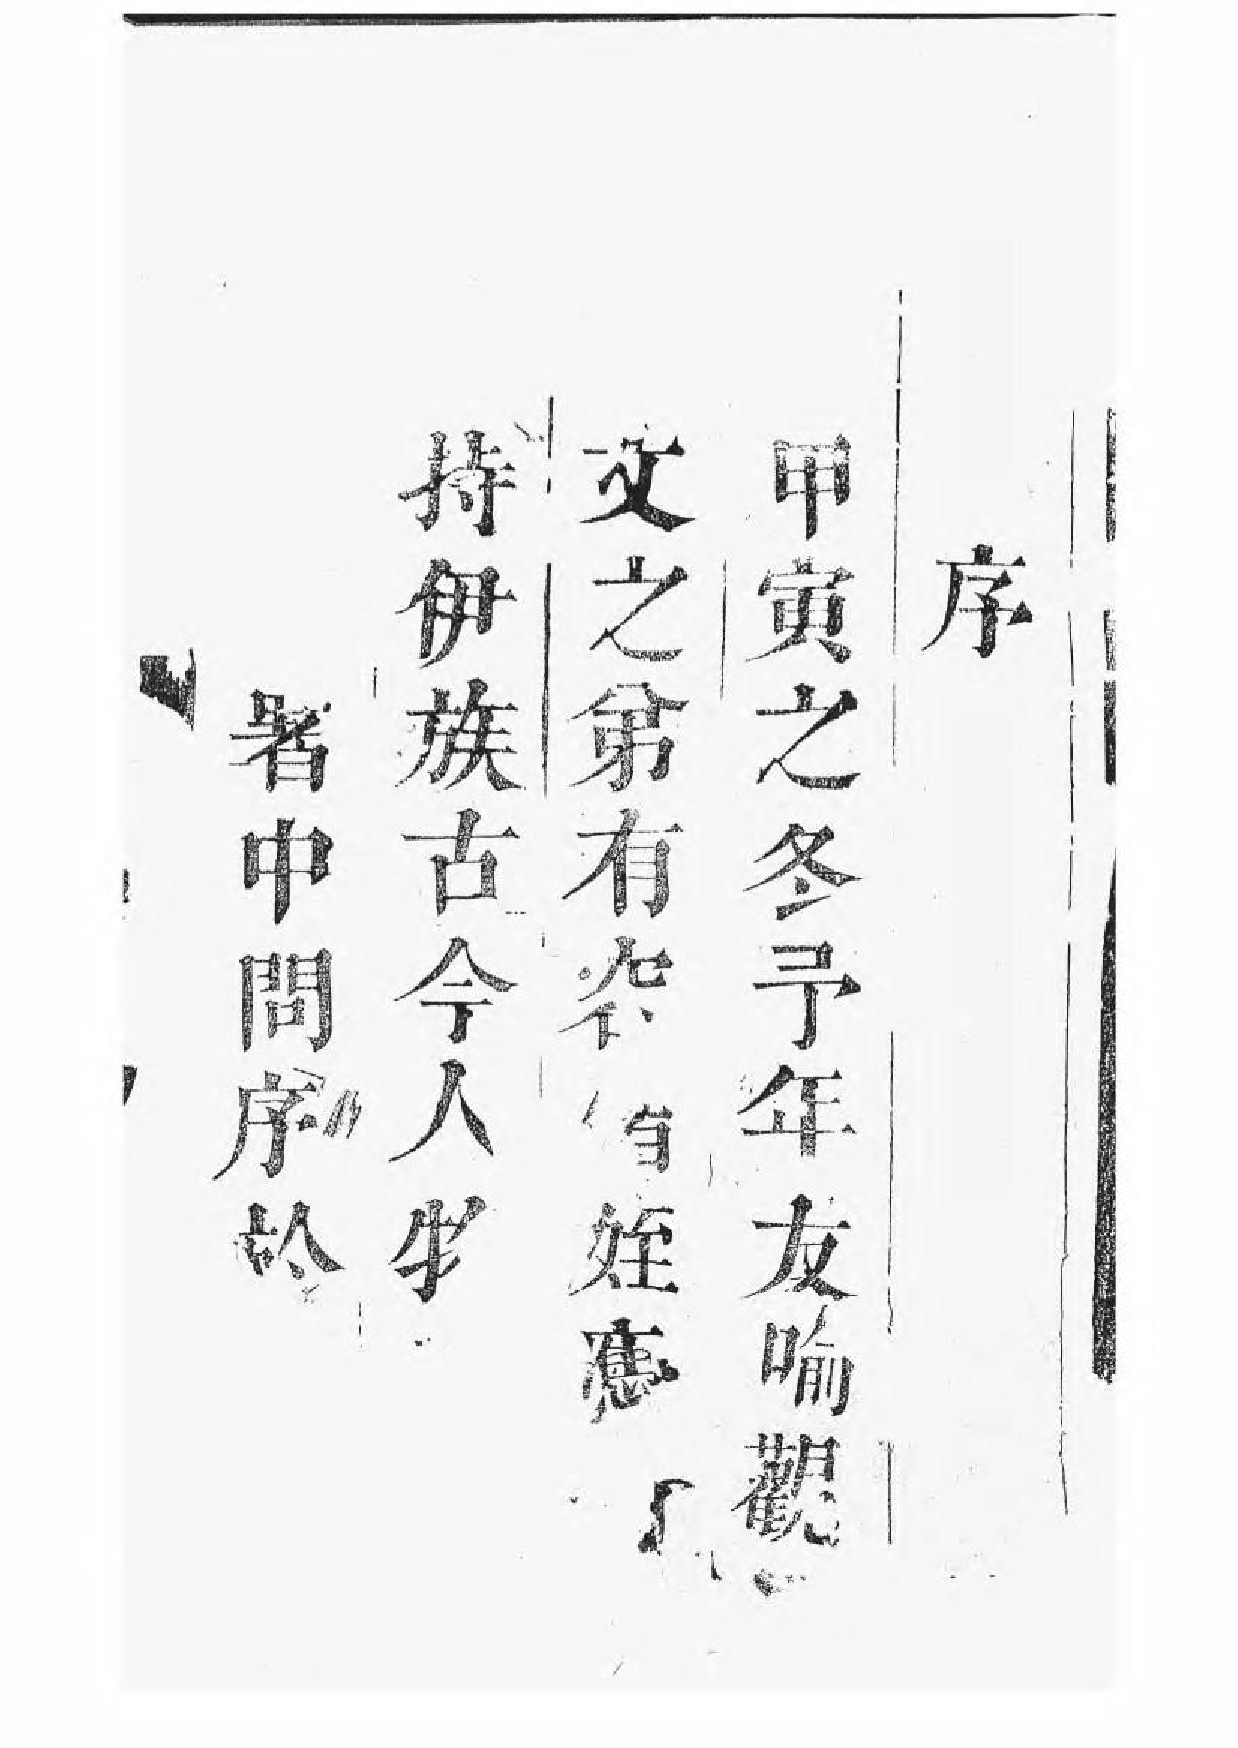 序
甲寅之冬予年友喻觀
文之弟有 姪
持伊族古今人
著中問序於